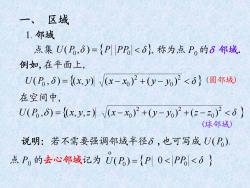 一、 区域
1. 邻域
点集 U(P₀,δ) = {P | |PP₀| < δ}, 称为点 P₀ 的 δ 邻域.
例如,在平面上,
U(P₀,δ) = {(x,y) | √((x−x₀)²+(y−y₀)²) < δ} (圆邻域)
在空间中,
U(P₀,δ) = {(x,y,z) | √((x−x₀)²+(y−y₀)²+(z−z₀)²) < δ}
(球邻域)
说明: 若不需要强调邻域半径δ ,也可写成 U(P₀).
点 P₀ 的去心邻域记为 Ů(P₀) = {P | 0 < |PP₀| < δ}